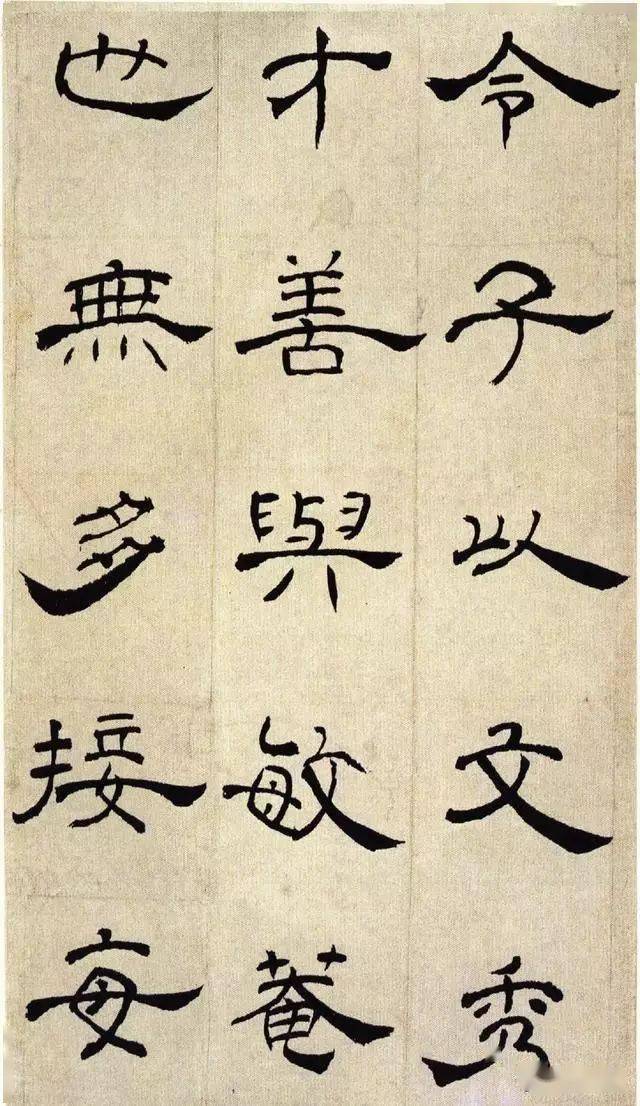 令子以文秀
才善與敏菴
世無多接每